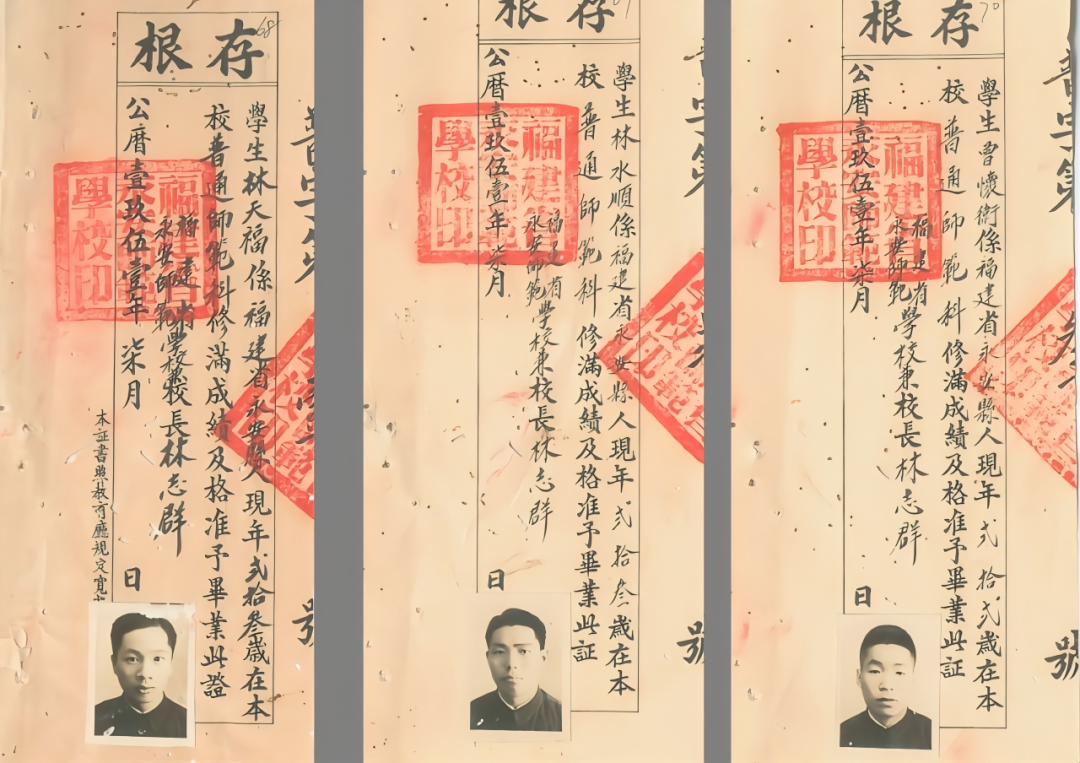 68
存根
學生林天福係福建省永安縣人現年弍拾叁歲在本
校普通師範科修滿成績及格准予畢業此證
福建省
永安師範學校兼校長林志群
公曆壹玖伍壹年柒月 日
本証書照教育廳規定寬
福建省
學校印
號
存根
學生林水順係福建省永安縣人現年弍拾叁歲在本
校普通師範科修滿成績及格准予畢業此証
福建省
永安師範學校兼校長林志群
公曆壹玖伍壹年柒月 日
福建省
學校印
普字第
號
70
存根
學生曾懷衛係福建省永安縣人現年弍拾弍歲在本
校普通師範科修滿成績及格准予畢業此証
福建省
永安師範學校兼校長林志群
公曆壹玖伍壹年柒月 日
福建省
學校印
普字第
號